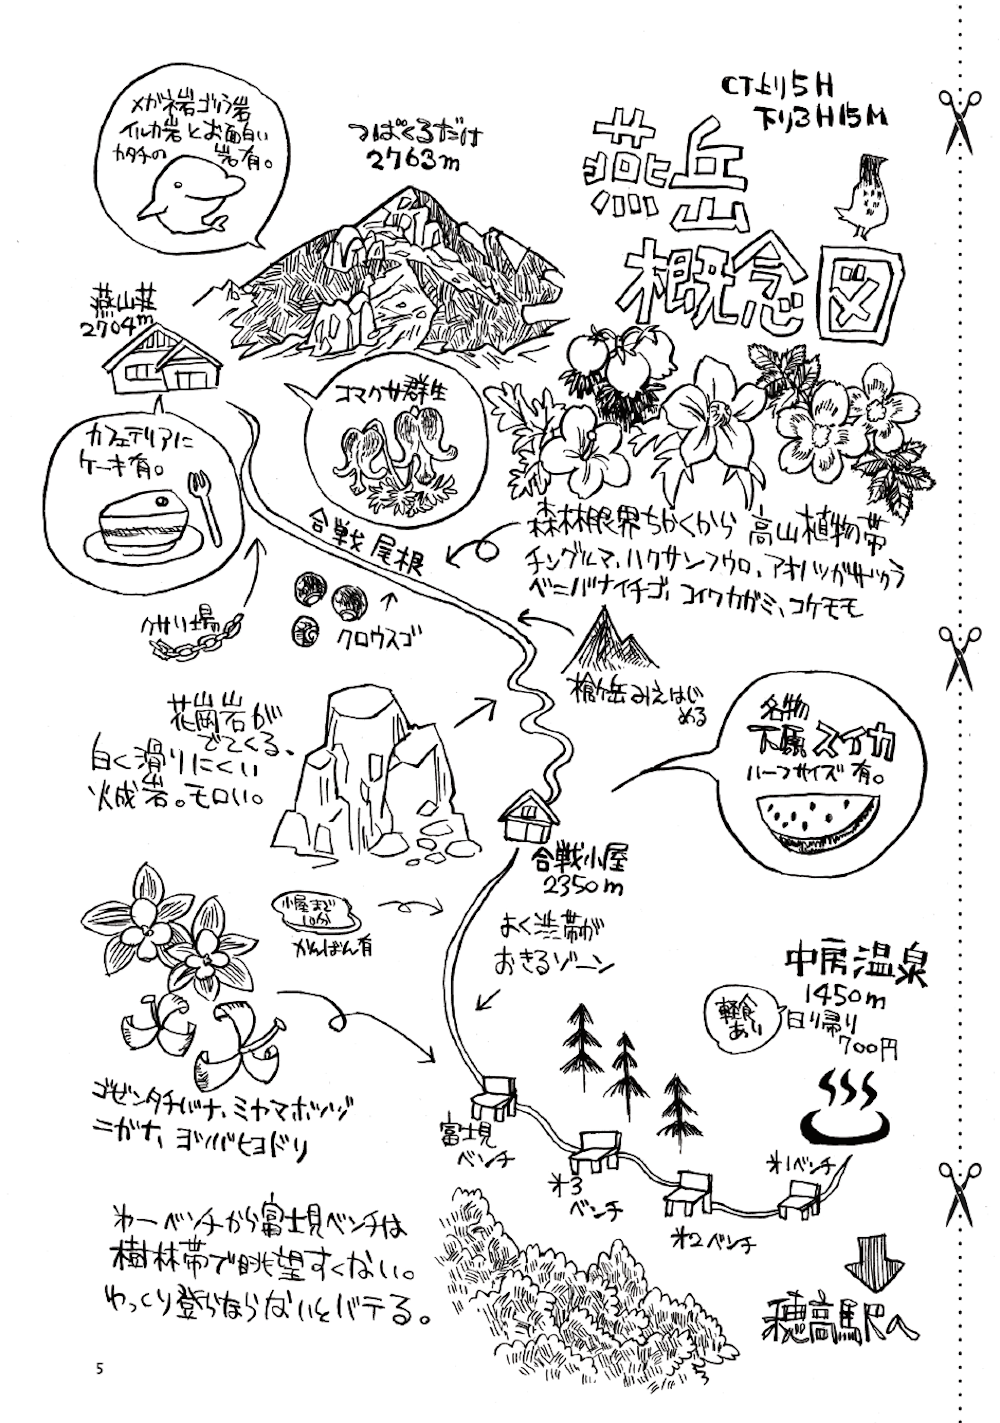 CTより5H
下り3H15M
燕岳
概念図
メガネ岩ゴリラ岩
イルカ岩とお面白い
カタチの岩有。
つばくろだけ
2763m
燕山荘
2704m
カフェテリアに
ケーキ有。
コマクサ群生
合戦尾根
森林限界ちかくから高山植物帯
チングルマ、ハクサンフウロ、アオノツガザクラ
ベニバナイチゴ、コイワカガミ、コケモモ
クサリ場
クロウスゴ
槍ヶ岳みえはじ
める
花崗岩が
でてくる、
白く滑りにくい
火成岩。モロい。
名物
下原スイカ
ハーフサイズ有。
合戦小屋
2350m
小屋まで
10分
かんばん有
よく渋帯が
おきるゾーン
中房温泉
1450m
日り帰り
700円
軽食
あり
ゴゼンタチバナ、ミヤマホツツジ
ニガナ、ヨツバヒヨドリ
富士見
ベンチ
オ3
ベンチ
オ2ベンチ
オ1ベンチ
オーベンチから富士見ベンチは
樹林帯で眺望すくない。
ゆっくり登らならないとバテる。
穂高駅へ
5